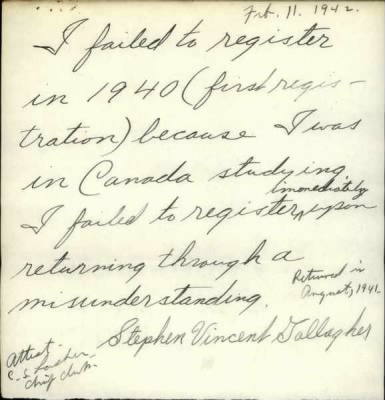 Feb. 11. 1942.
I failed to register
in 1940 (first regis-
tration) because I was
in Canada studying.
immediately
I failed to register upon
returning through a
misunderstanding.
Returned in
August, 1941.
Stephen Vincent Gallagher
Attest -
C. S.
Chief Clerk.